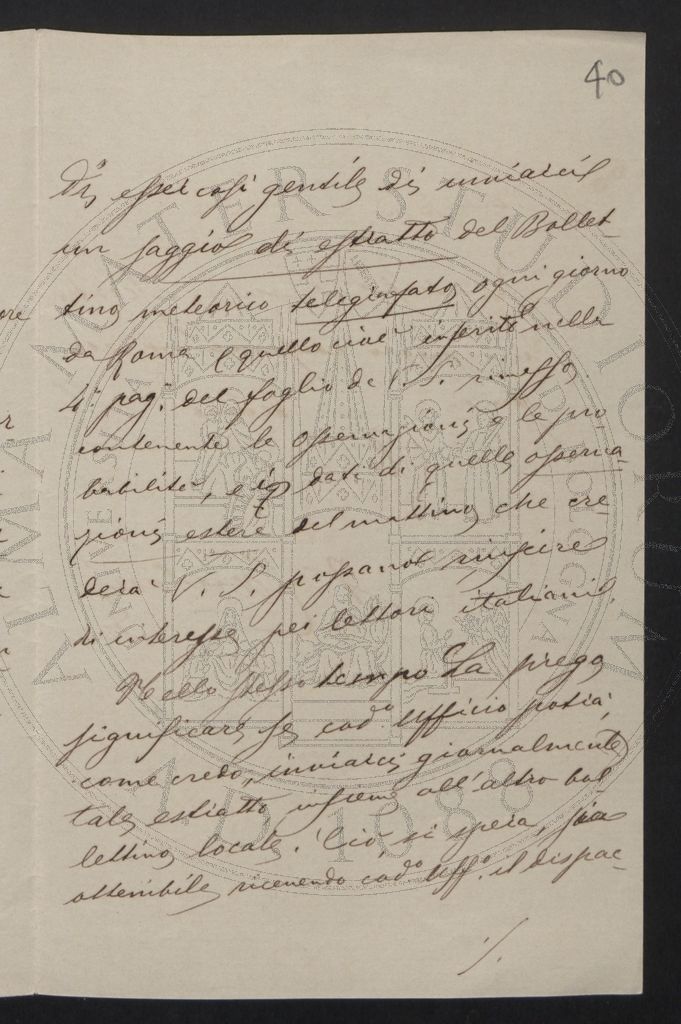 40
di esser così gentile di inviarci
un saggio di estratto del Bollet-
tino meteorico telegrafato ogni giorno
da Roma (quello cioè inserito nella
4ª pag. del foglio da V. S. rimesso,
contenente le osservazioni e le pro
babilità, e i dati di quelle osserva-
zioni estere del mattino che cre
derà V. S. possano riuscire
di interesse pei lettori italiani.
Nello stesso tempo La prego
significare se cod.º Ufficio potrà,
come credo, inviarci giornalmente
tale estratto insieme all'altro bol
lettino locale. Ciò si spera, sia
ottenibile ricevendo cod.º Uff.º il dispac-
./.